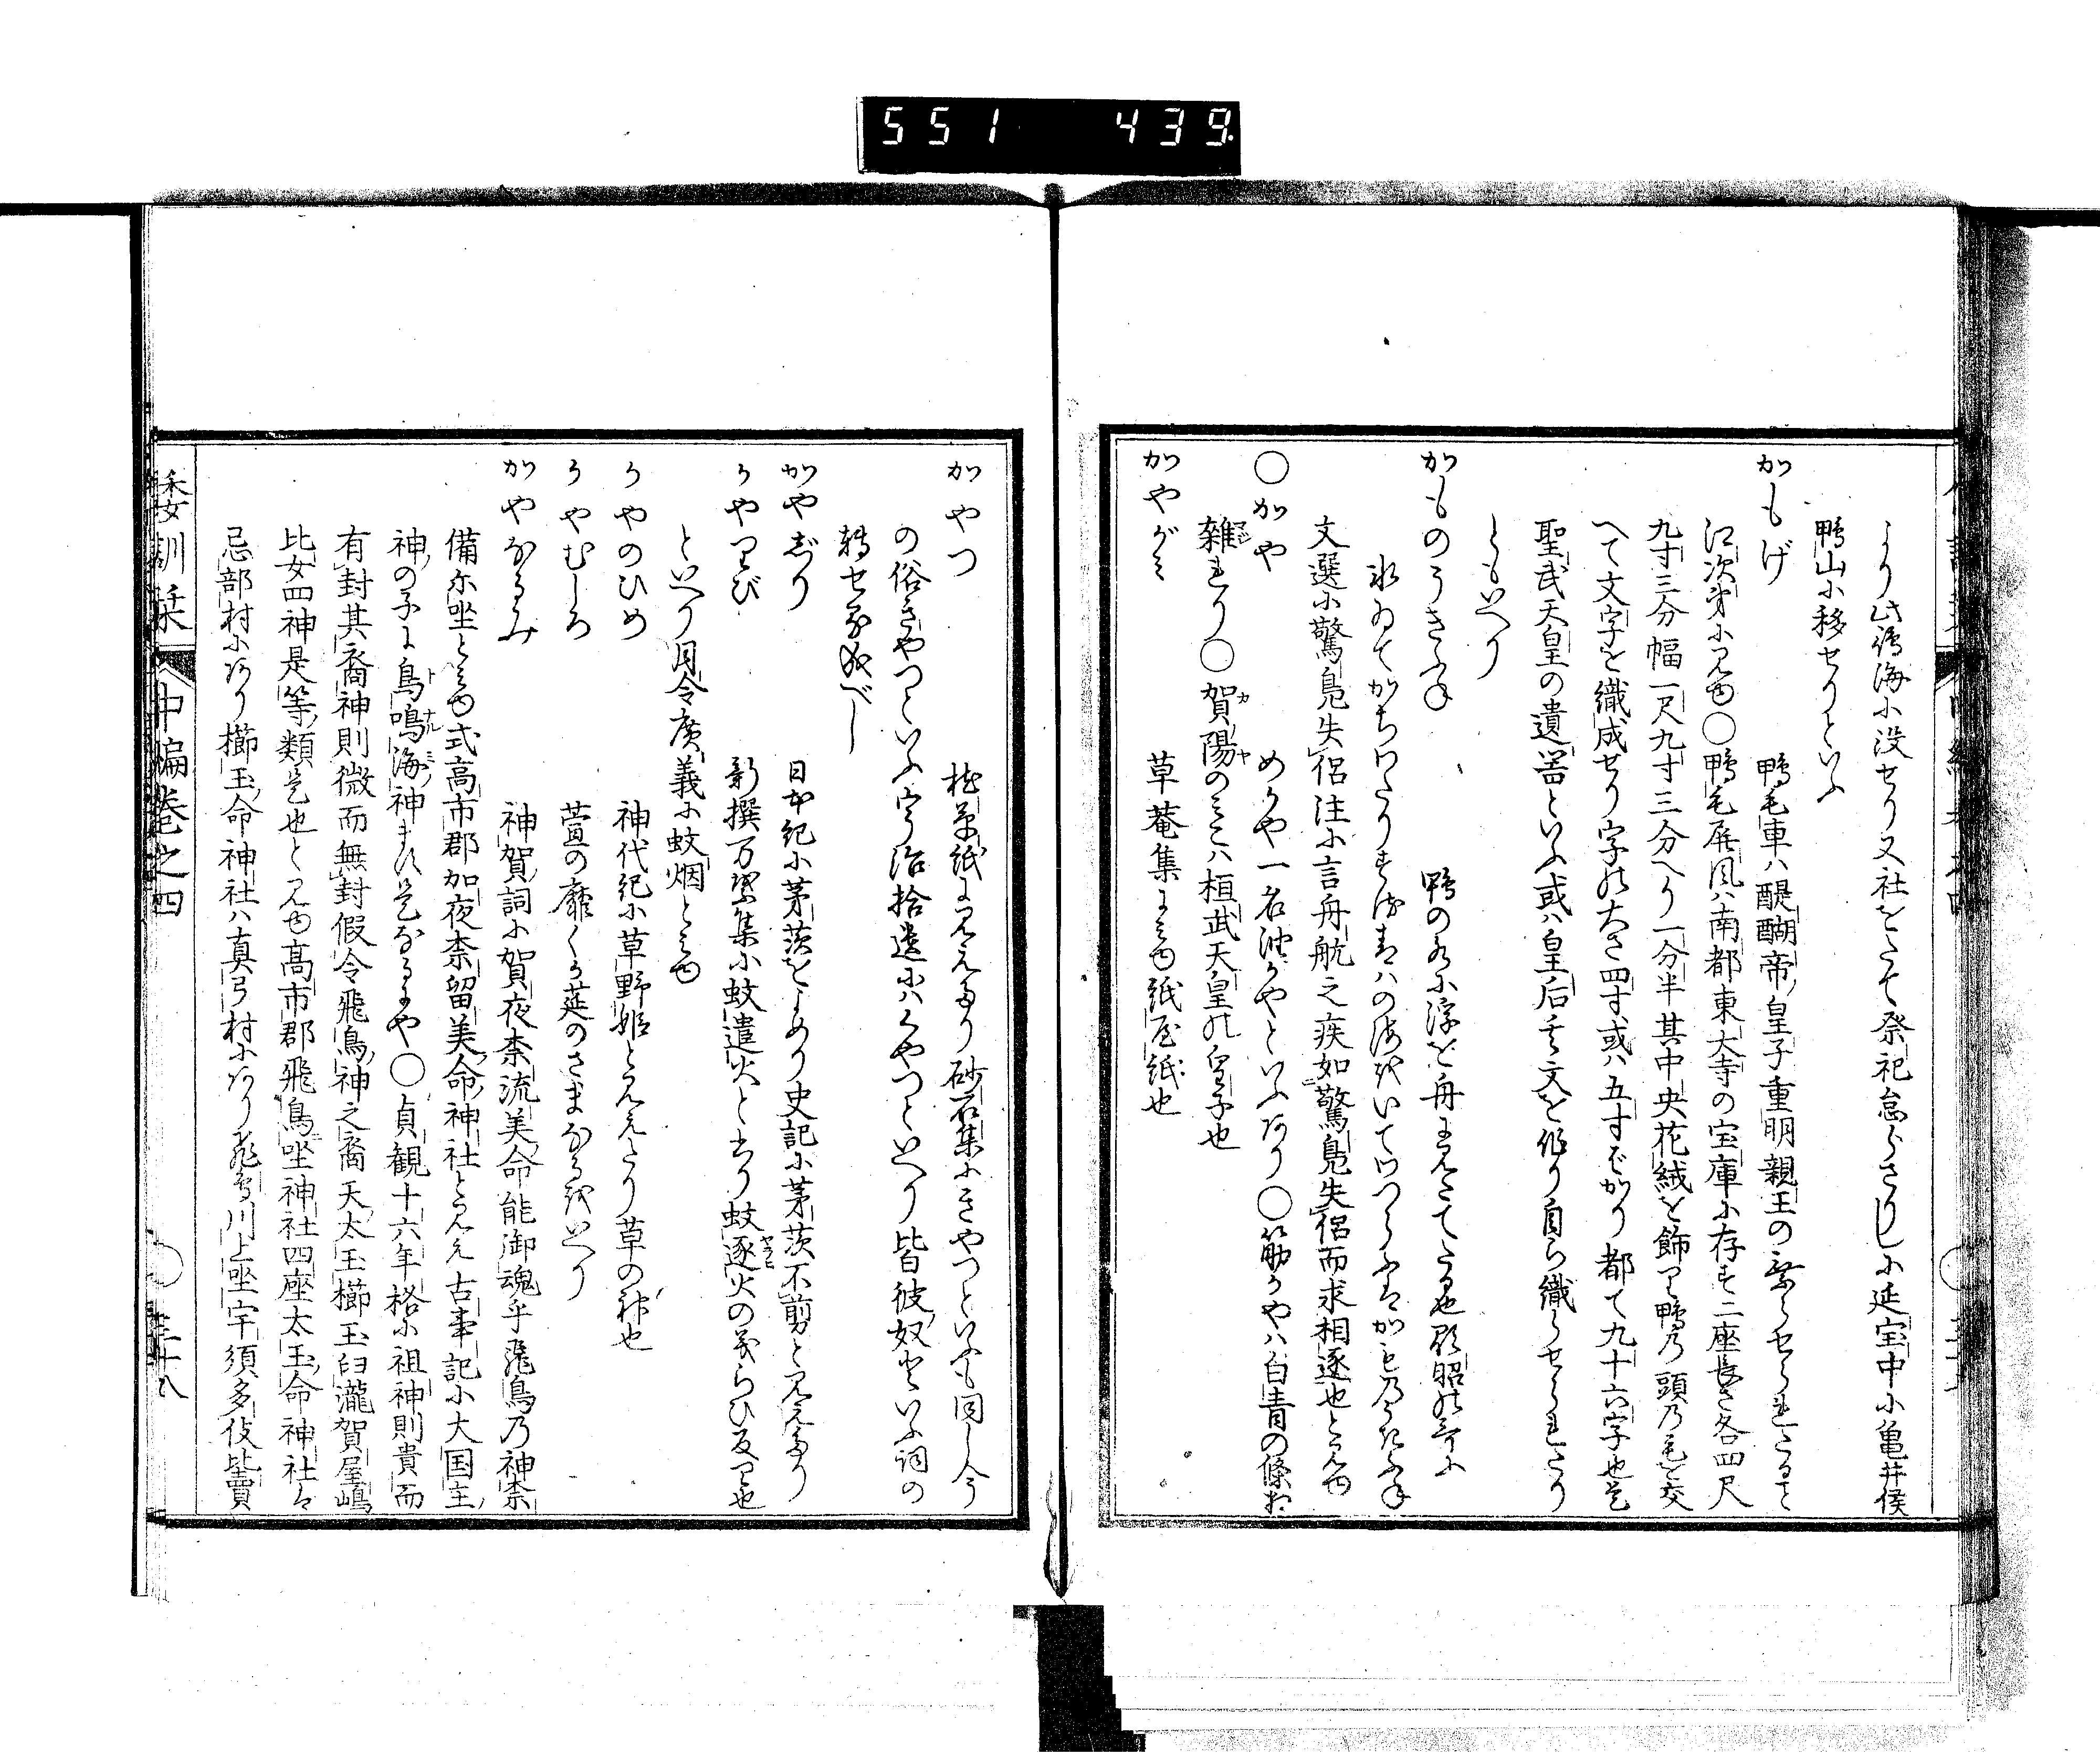 551 439
より此鴨海に没せり又社をたて祭祀怠らさりしに延宝中に亀井侯
鴨山に移せりといふ
かもげ 鴨毛車ハ醍醐帝皇子重明親王の乗らせられたること
江次第に見ゆ〇鴨毛屏風ハ南都東大寺の宝庫に存す二座長さ各四尺
九寸三分幅一尺九寸三分へり一分半其中央花絨を飾り鴨乃頭乃毛を交
へて文字を織成せり字の大さ四寸或ハ五寸ばかり都て九十六字也是
聖武天皇の遺器といふ或ハ皇后手文を作り自ら織らせられたり
ともいへり
かものうきふね 鴨の水に浮を舟に見たてたる也顕昭の哥に
氷ゐてかちわたりするすはの海ⅳいてわつらふはかも乃うきふね
文選に驚鳧失侶注に言舟航之疾如驚鳧失侶而求相逐也と見ゆ
〇かや めかや一名油かやといふあり〇筋かやハ白青の條お
雑れり〇賀陽のみこハ桓武天皇の皇子也
かやがミ 草菴集にミゆ紙屋紙也
かやつ 枕草紙に見えたり砂石集にきやつといふも同し今
の俗きやつといふ宇治拾遺にハくやつといへり皆彼奴といふ詞の
轉せる成べし
かやぶり 日本紀に茅茨をよめり史記に茅茨不剪と見えたり
かやりび 新撰万葉集に蚊遣火とあり蚊逐火の義らひ反り也
といへり月令廣義に蚊烟とミゆ
かやのひめ 神代紀に草野姫と見えたり草の神也
かやむしろ 萱の靡くか莚のさまなるをいへり
かやなるみ 神賀詞に賀夜奈流美命能御魂乎飛鳥乃神奈
備尓坐とミゆ式高市郡加夜奈留美命神社と見え古事記に大国主
神の子に鳥鳴海神ます是なるにや〇貞観十六年格に祖神則貴而
有封其裔神則微而無封假令飛鳥神之裔天太玉櫛玉臼瀧賀屋嶋
比女四神是等類是也と見ゆ高市郡飛鳥坐神社四座太玉命神社ハ
忌部村にあり櫛玉命神社ハ真弓村にあり飛鳥川上坐宇須多伎比賣
倭訓栞 中編巻之四 〇三十八